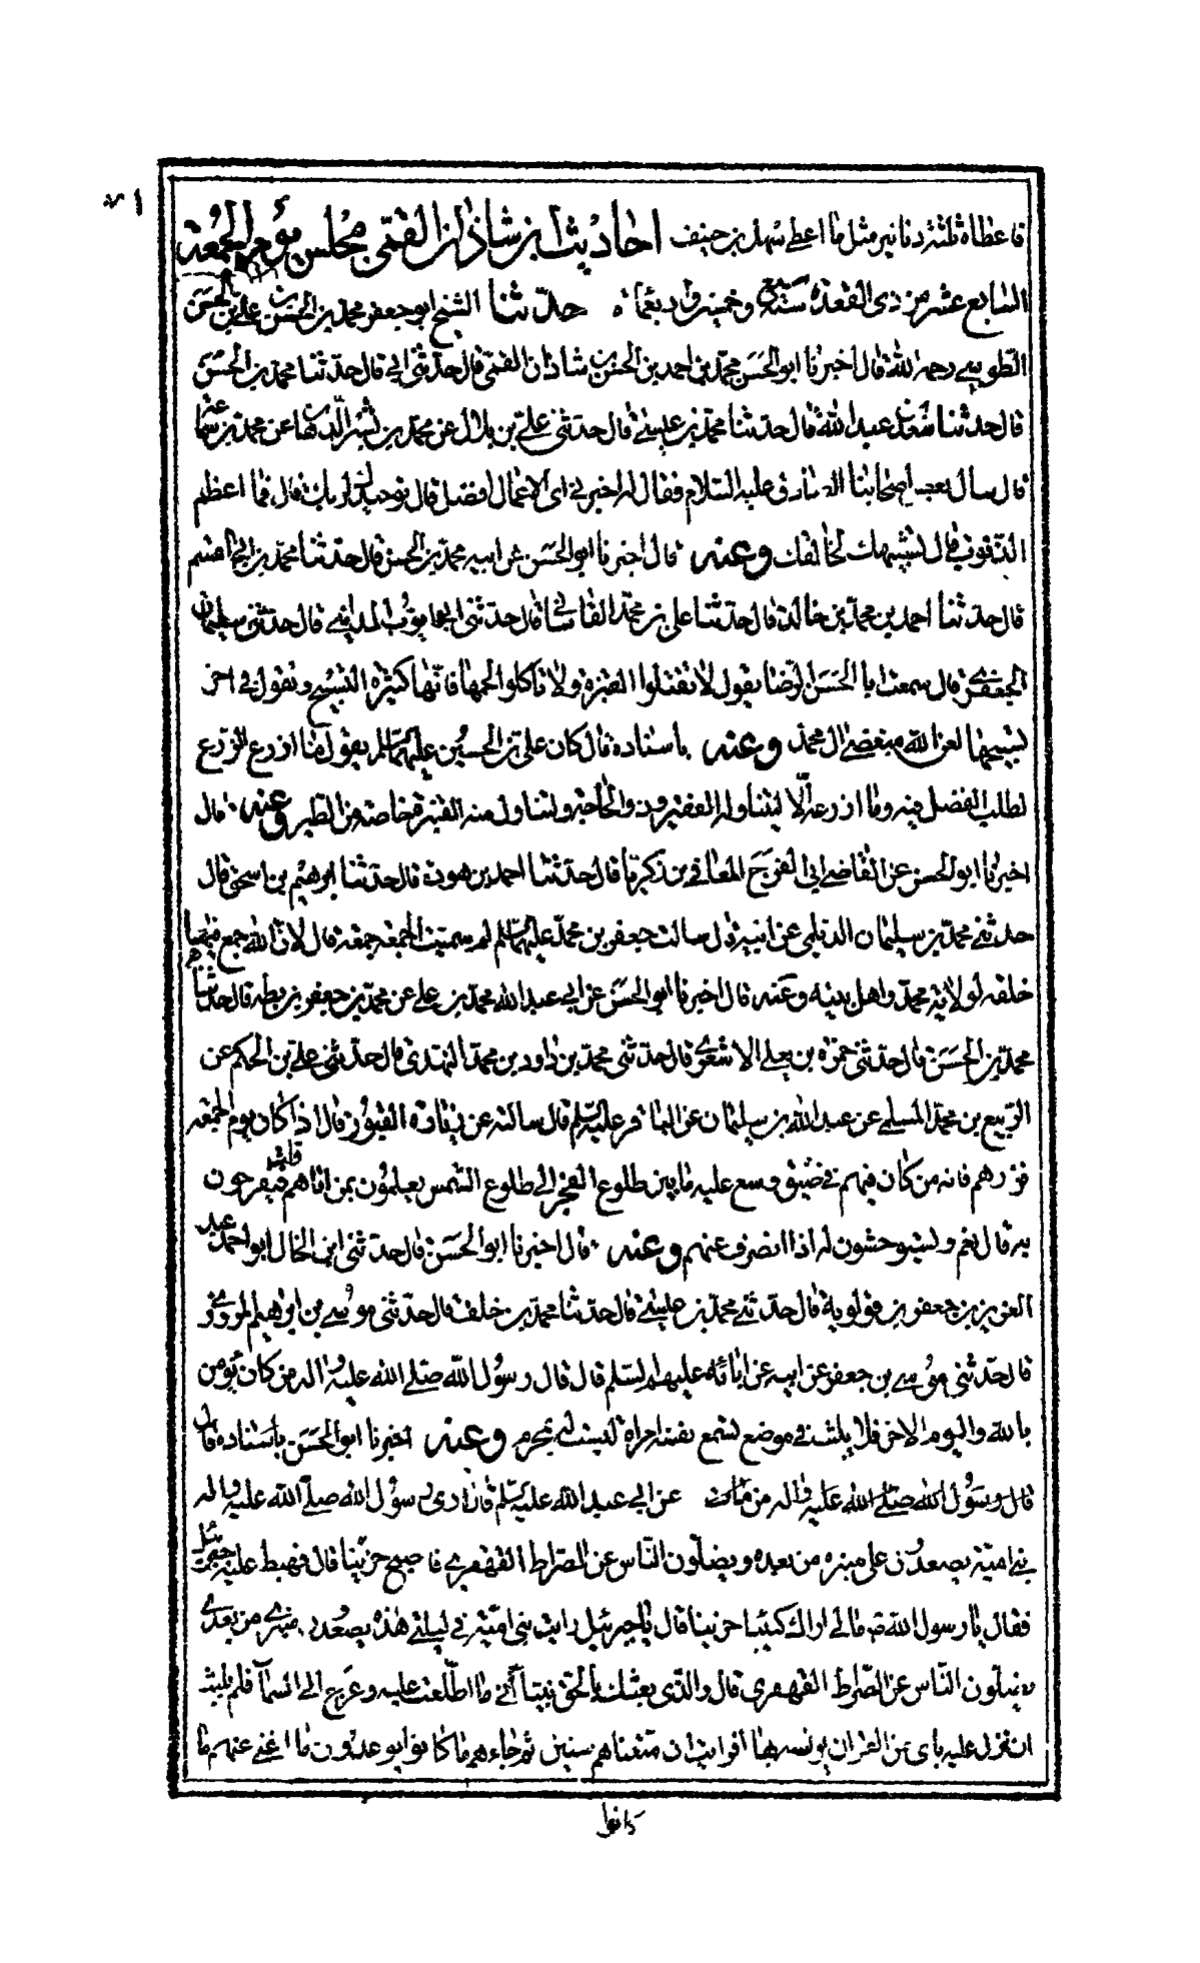 فاعطاه ثلثة دنانير مثل ما اعطى سهل بن حنيف احاديث ابن شاذان القمّى مجلس يوم الجمعة
السابع عشر من ذى القعدة سنة سبع وخمسين واربعمائة حدّثنا الشيخ ابو جعفر محمد بن الحسن بن على بن الحسن
الطوسى رحمه الله قال اخبرنا ابو الحسن محمد بن احمد بن الحسن بن شاذان القمى قال حدثنى ابى قال حدثنا محمد بن الحسن
قال حدثنا سعد بن عبد الله قال حدثنا محمد بن عيسى قال حدثنى على بن بلال عن محمد بن بشر الدهان عن محمد بن سماعة
قال سال بعض اصحابنا الصادق عليه السلام فقال له اخبرنى اى الاعمال افضل قال توحيدك لربك قال فما اعظم
الذنوب قال تشبيهك لخالقك وعنه قال اخبرنا ابو الحسن عن ابيه محمد بن الحسن قال حدثنا محمد بن ابى القسم
قال حدثنا احمد بن محمد بن خالد قال حدثنا على بن محمد القاسانى قال حدثنى ابو ايوب المدينى قال حدثنى سليمان
الجعفرى قال سمعت ابا الحسن الرضا يقول لا تقتلوا القنبرة ولا تاكلوا لحمها فانها كثيرة التسبيح وتقول فى اخر
تسبيحها لعن الله مبغضى ال محمد وعنه باسناده قال كان على بن الحسين عليهما السلم يقول ما ازرع الزرع
لطلب الفضل فيه وما ازرعه الا ليتناوله الفقير وذو الحاجة وليتناول منه القنبرة خاصة من الطير وعنه قال
اخبرنا ابو الحسن عن القاضى ابى الفرج المعافى بن زكريا قال حدثنا احمد بن هوذة قال حدثنا ابرهيم بن اسحق قال
حدثنى محمد بن سليمان الديلمى عن ابيه قال سالت جعفر بن محمد عليهما السلم لم سميت الجمعة جمعة قال لان الله جمع فيها
خلقه لولاية محمد واهل بيته وعنه قال اخبرنا ابو الحسن عن ابى عبد الله محمد بن على عن محمد بن جعفر بن بطة قال حدثنا
محمد بن الحسن قال حدثنى حمزة بن يعلى الاشعرى قال حدثنى محمد بن داود بن محمد النهدى قال حدثنى على بن الحكم عن
الربيع بن محمد المسلى عن عبد الله بن سليمان عن الباقر عليه السلم قال سالته عن زيارة القبور قال اذا كان يوم الجمعة
فزرهم فانه من كان فيهم فى ضيق وسع عليه ما بين طلوع الفجر الى طلوع الشمس يعلمون بمن اتاهم قلت فيفرحون
به قال نعم وليستوحشون له اذا انصرف عنهم وعنه قال اخبرنا ابو الحسن قال حدثنى ابن الخال ابو احمد عبد
العزيز بن جعفر بن قولويه قال حدثنى محمد بن عيسى قال حدثنا محمد بن خلف قال حدثنى موسى بن ابراهيم المروزى
قال حدثنى موسى بن جعفر عن ابيه عن ابائه عليهم السلم قال قال رسول الله صلى الله عليه واله من كان يؤمن
بالله واليوم الاخر فلا يلبث فى موضع تسمع نفسه امراة ليست له بمحرم وعنه اخبرنا ابو الحسن باسناده قال
قال رسول الله صلى الله عليه واله من مات عن ابى عبد الله عليه السلم قال ارى رسول الله صلى الله عليه واله
بنى امية يصعدون على منبره من بعده ويضلون الناس عن الصراط القهقرى فاصبح حزينا قال فهبط عليه جبرئيل
فقال يا رسول الله ما لى اراك كئيبا حزينا قال يا جبرئيل رايت بنى امية فى ليلتى هذه يصعدون منبرى من بعدى
يضلون الناس عن الصراط القهقرى قال والذى بعثك بالحق نبيا انى ما اطلعت عليه وعرج الى السماء فلم يلبث
ان نزل عليه باى من القران يونسه بها افرايت ان متعناهم سنين ثم جاءهم ما كانوا يوعدون ما اغنى عنهم ما
كانوا